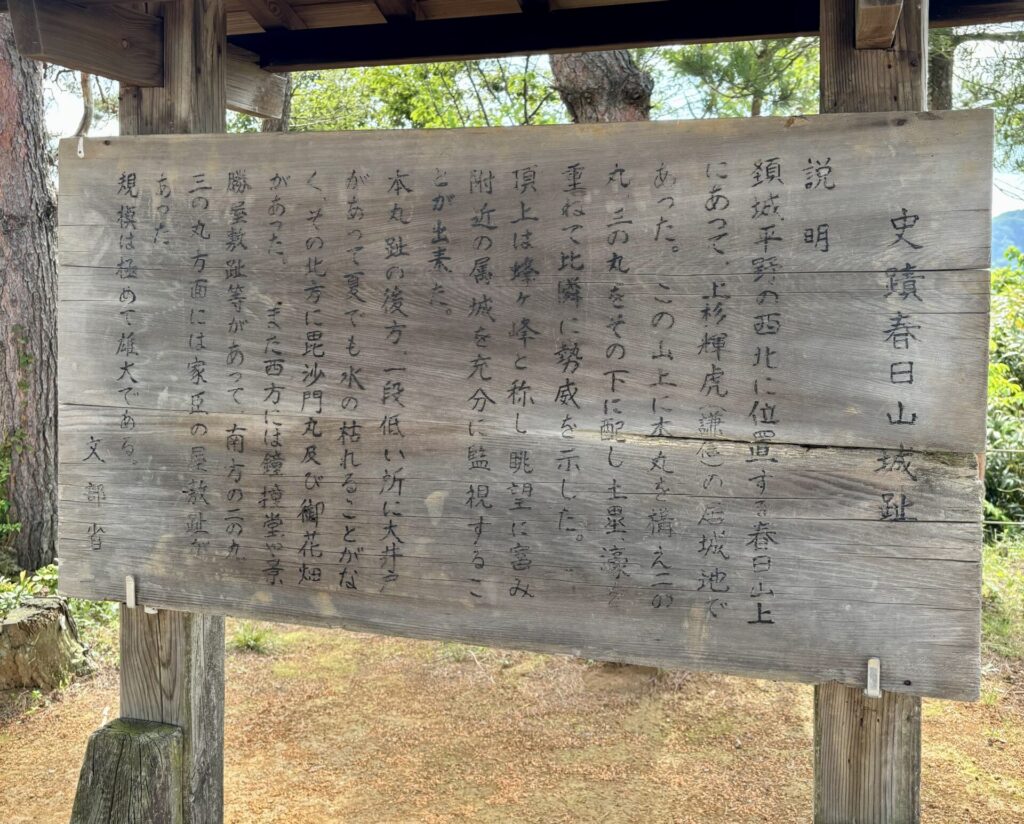 史蹟春日山城趾
説明
頚城平野の西北に位置する春日山上
にあって、上杉輝虎(謙信)の居城池で
あった。この山上に本丸を構え二の
丸、三の丸をその下に配し土塁、濠を
重ねて比隣に勢威を示した。
頂上は蜂ヶ峰と称し眺望に富み
附近の属城を充分に監視するこ
とが出来た。
本丸趾の後方、一段低い所に大井戸
があって夏でも水の枯れることがな
く、その北方に毘沙門丸及び御花畑
があった。また西方には鐘撞堂や景
勝屋敷趾等があって、南方の二の丸
三の丸方面には家臣の屋敷趾が
あった
規模は極めて雄大である。
文部省